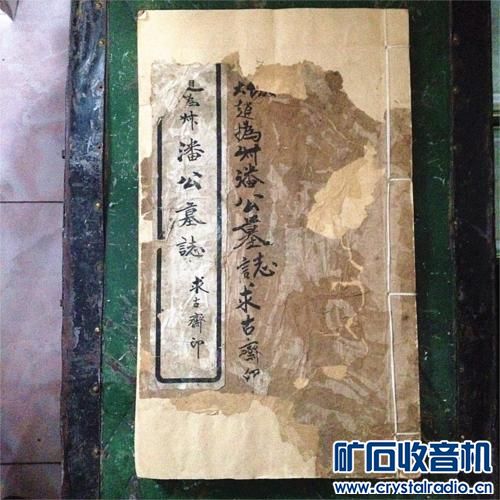 趙撝叔潘公墓誌求古齋印
叔潘公墓誌
求古齋印
矿石收音机
www.crystalradio.cn